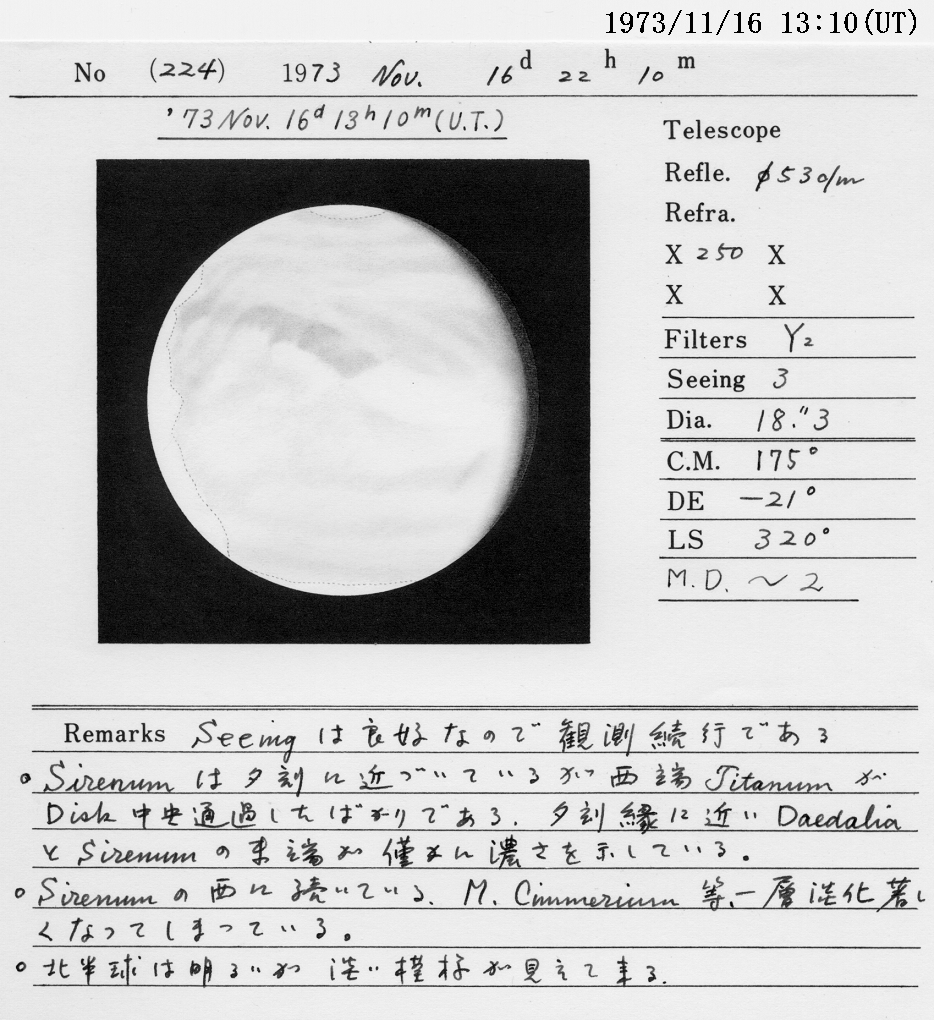 1973/11/16 13:10(UT)
No (224) 1973 Nov. 16d 22h 10m
'73 Nov. 16d 13h 10m (U.T.)
Telescope
Refle. φ530/m
Refra.
X 250 X
X X
Filters Y2
Seeing 3
Dia. 18."3
C.M. 175°
DE -21°
LS 320°
M.D. ~2
Remarks Seeingは良好なので観測続行である
○ Sirenumは夕刻に近づいているが西端Titanumが
Disk中央通過したばかりである. 夕刻縁に近いDaedalia
とSirenumの末端が僅かに濃さを示している。
○ Sirenumの西に続いている. M. Cimmerium等、一層淡化著し
くなってしまっている。
○ 北半球は明るいが淡い模様が見えて来る.